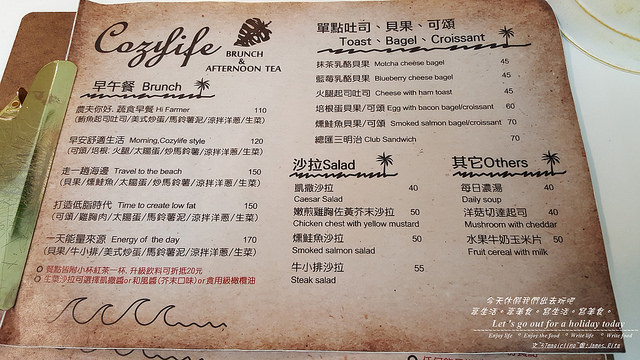 Cozylife
BRUNCH
&
AFTERNOON TEA
早午餐 Brunch
農夫你好. 蔬食早餐 Hi Farmer 110
(鮪魚起司吐司/美式炒蛋/馬鈴薯泥/涼拌洋蔥/生菜)
早安舒適生活 Morning,Cozylife style 120
(可頌/培根: 火腿/太陽蛋/炒馬鈴薯泥/涼拌洋蔥/生菜)
走一趟海邊 Travel to the beach 150
(貝果/燻鮭魚/太陽蛋/炒馬鈴薯泥/涼拌洋蔥/生菜)
打造低脂時代 Time to create low fat 150
(可頌/雞胸肉/太陽蛋/馬鈴薯泥/涼拌洋蔥/生菜)
一天能量來源 Energy of the day 170
(貝果/牛小排/美式炒蛋/馬鈴薯泥/涼拌洋蔥/生菜)
餐點皆附小杯紅茶一杯, 升級飲料可折抵20元
生菜沙拉可選擇凱撒醬or和風醬(芥末口味)or食用級橄欖油
單點吐司、貝果、可頌
Toast、Bagel、Croissant
抹茶乳酪貝果 Motcha cheese bagel 45
藍莓乳酪貝果 Blueberry cheese bagel 45
火腿起司吐司 Cheese with ham toast 45
培根蛋貝果/可頌 Egg with bacon bagel/croissant 60
燻鮭魚貝果/可頌 Smoked salmon bagel/croissant 70
總匯三明治 Club Sandwich 70
沙拉Salad
凱撒沙拉 40
Caesar Salad
嫩煎雞胸佐黃芥末沙拉 50
Chicken chest with yellow mustard
燻鮭魚沙拉 50
Smoked salmon salad
牛小排沙拉 55
Steak salad
其它Others
每日濃湯 40
Daily soup
洋菇切達起司 40
Mushroom with cheddar
水果牛奶玉米片 50
Fruit cereal with milk
今天休假我們出去玩吧
萃生活。萃美食。寫生活。寫美食。
Let's go out for a holiday today
Enjoy life * Enjoy the food * Write life * Write food